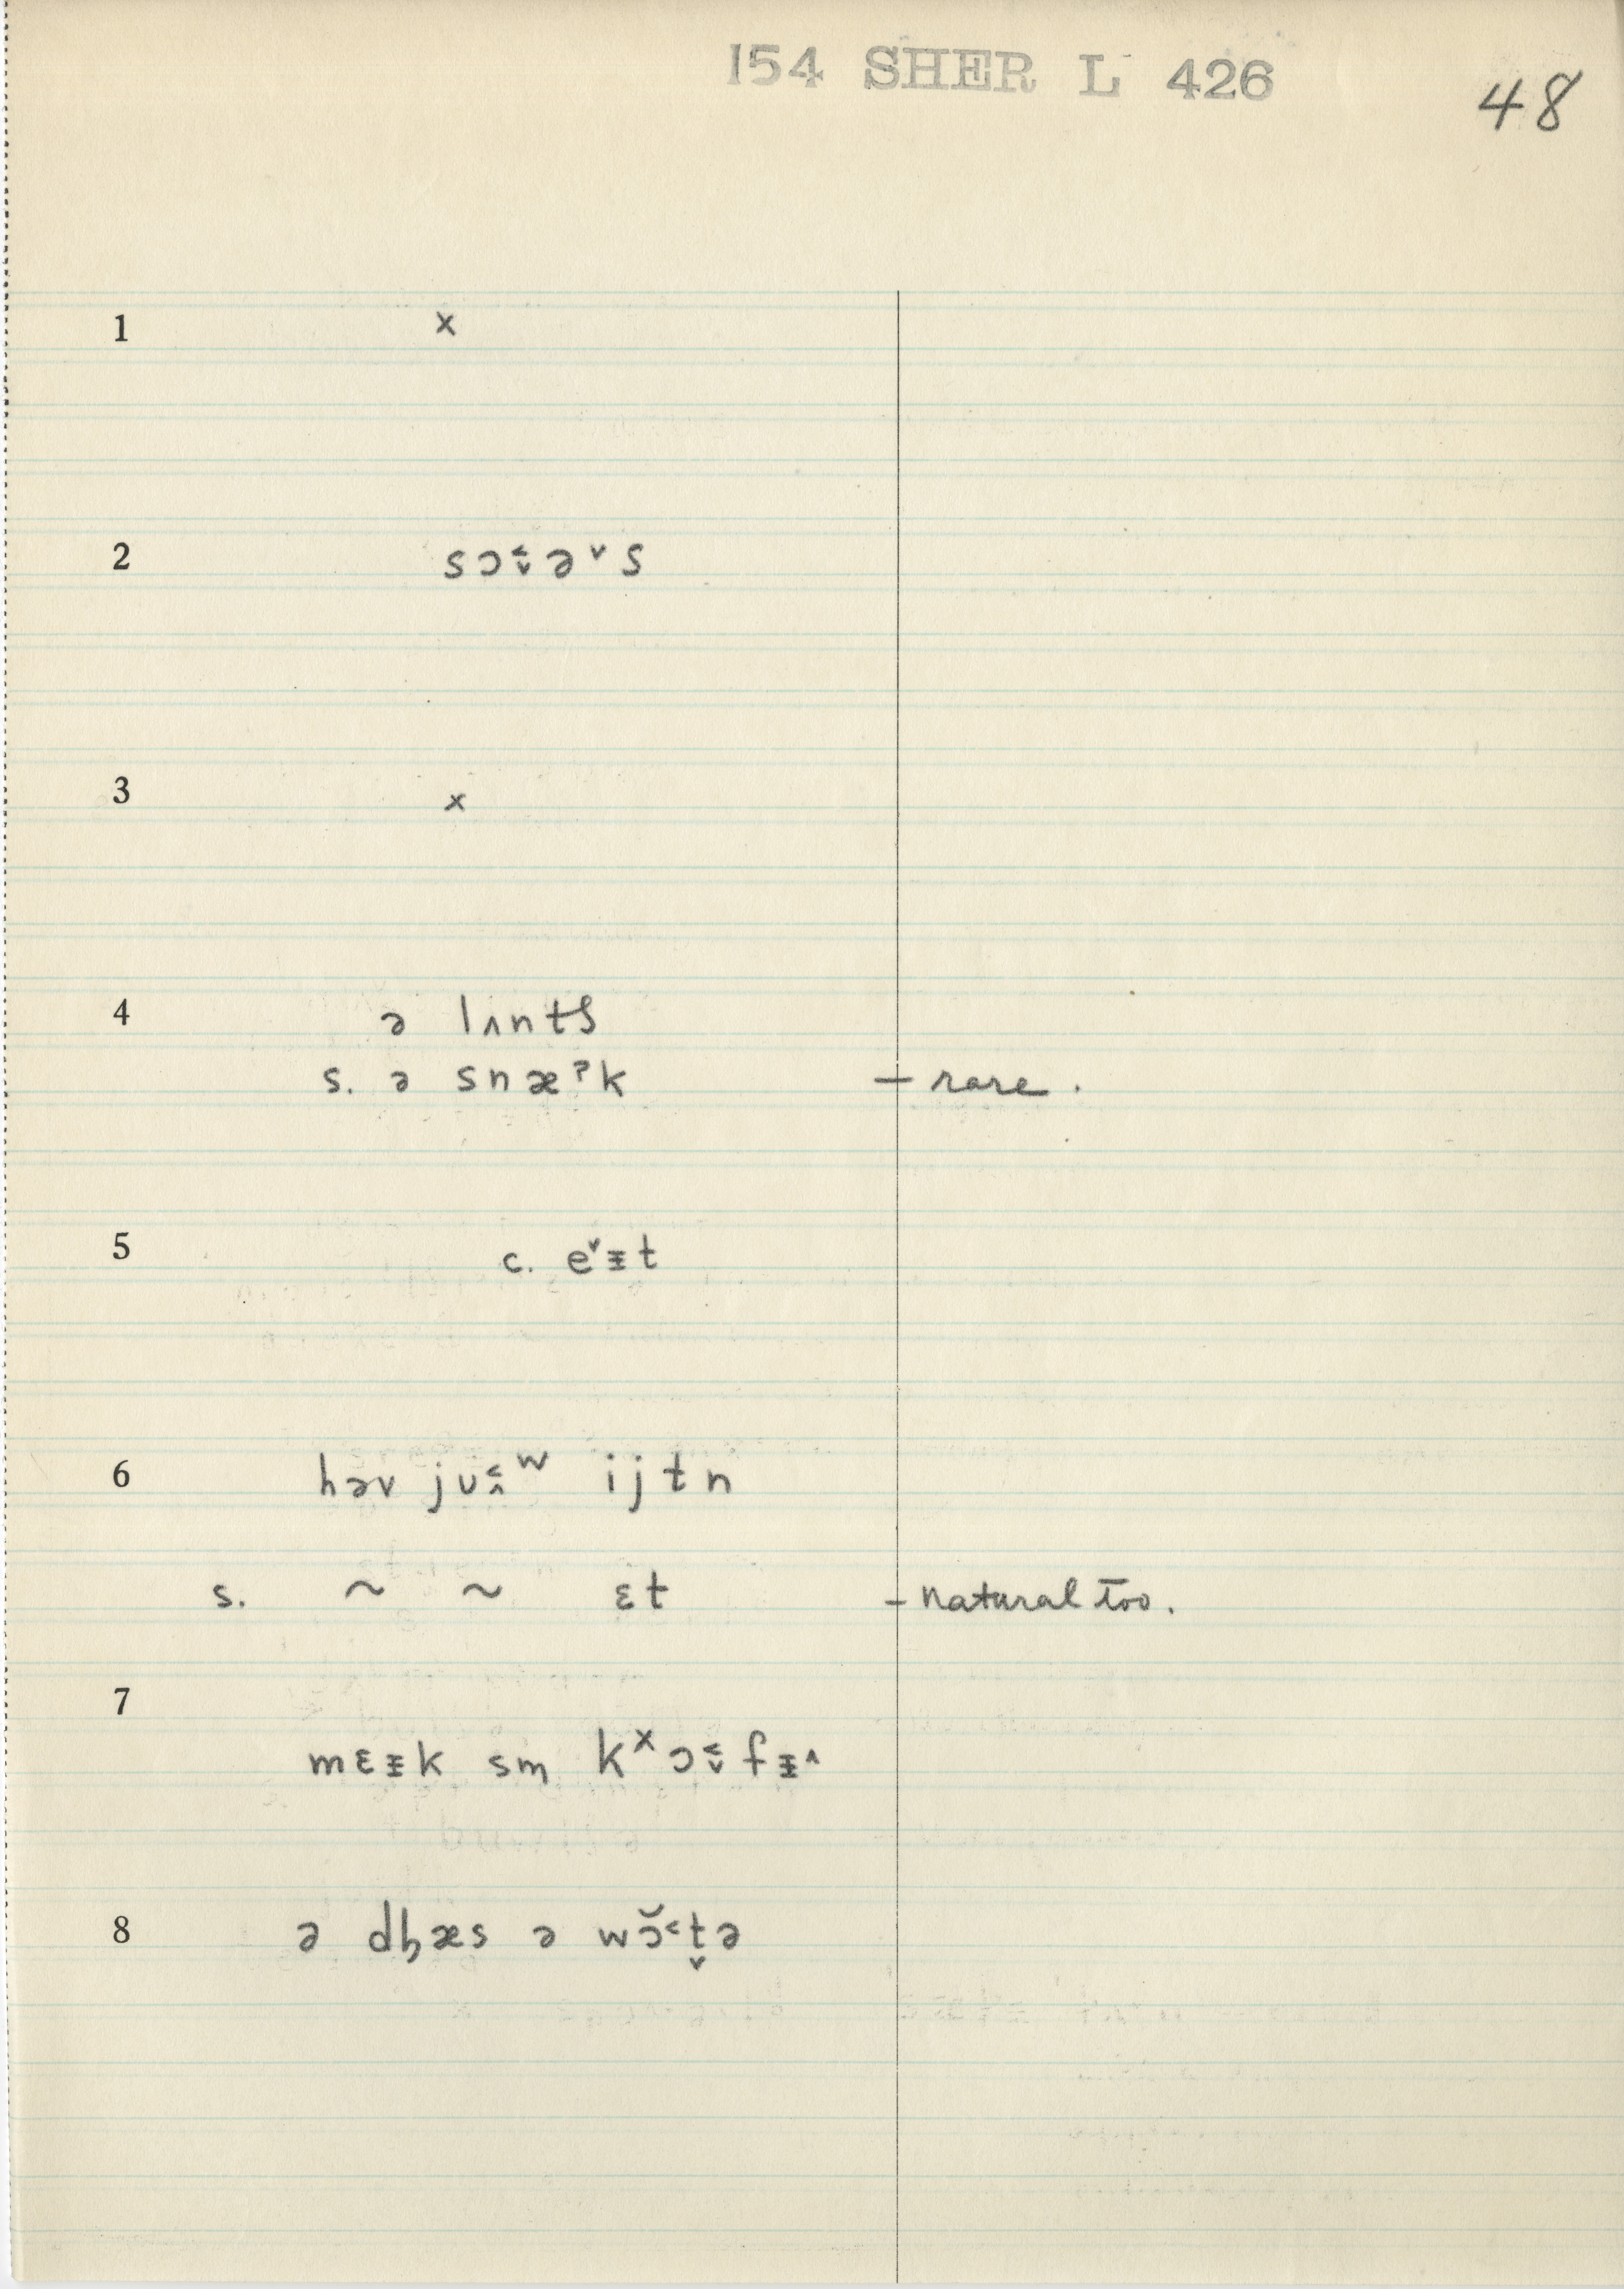 154 SHER L 426
48
1 x
2 sɔ˂̬əˇs
3 x
4 ə lʌntʃ
s. ə snæˀk – rare.
5 c. eˇᵻt
6 həv jʊ˂̭ʷ ijtn
s. ~ ~ ɛt – natural too.
7
mɛᵻk sm̩ kˣɔ˂̬fᵻ^
8 ə dɦæs ə wɔ̆˂t̬ə